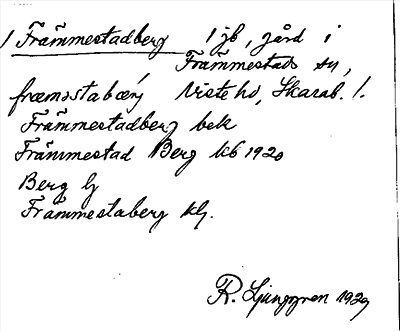 1 Främmestadberg 1 jb, gård i
Främmestads sn,
fræmstabærj Viste hd, Skarab. l.
Främmestadberg bek
Främmestad Berg kb 1920
Berg lj
Främmestaberg klj.
R. Ljunggren 1929